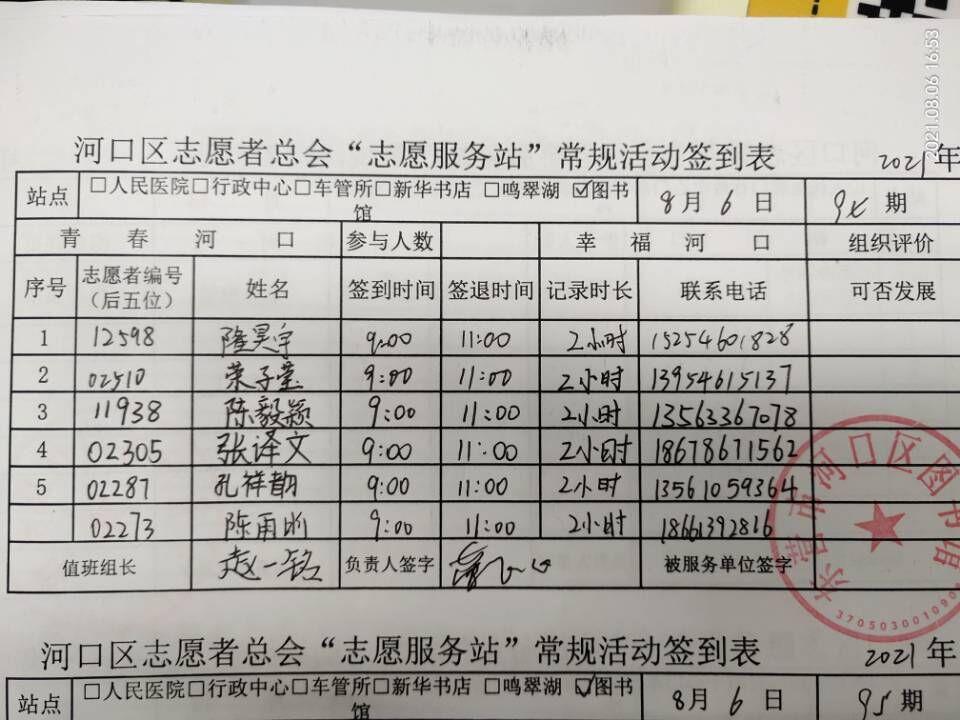 2021.08.06 16:53
河口区志愿者总会“志愿服务站”常规活动签到表 2021年
站点 □人民医院□行政中心□车管所□新华书店 □鸣翠湖 ☑图书馆 8月 6 日 94 期
青春河口 参与人数 幸福河口 组织评价
序号 志愿者编号（后五位） 姓名 签到时间 签退时间 记录时长 联系电话 可否发展
1 12598 隆昊宇 9:00 11:00 2小时 15254601828
2 02510 荣子莹 9:00 11:00 2小时 13954615137
3 11938 陈毅颖 9:00 11:00 2小时 13563367078
4 02305 张译文 9:00 11:00 2小时 18678671562
5 02287 孔祥韵 9:00 11:00 2小时 13561059364
02273 陈雨 9:00 11:00 2小时 18661392816
值班组长 赵一铭 负责人签字 被服务单位签字
东营市河口区图书馆
河口区志愿者总会“志愿服务站”常规活动签到表 2021年
站点 □人民医院□行政中心□车管所□新华书店 □鸣翠湖 ☑图书馆 8月 6 日 95 期